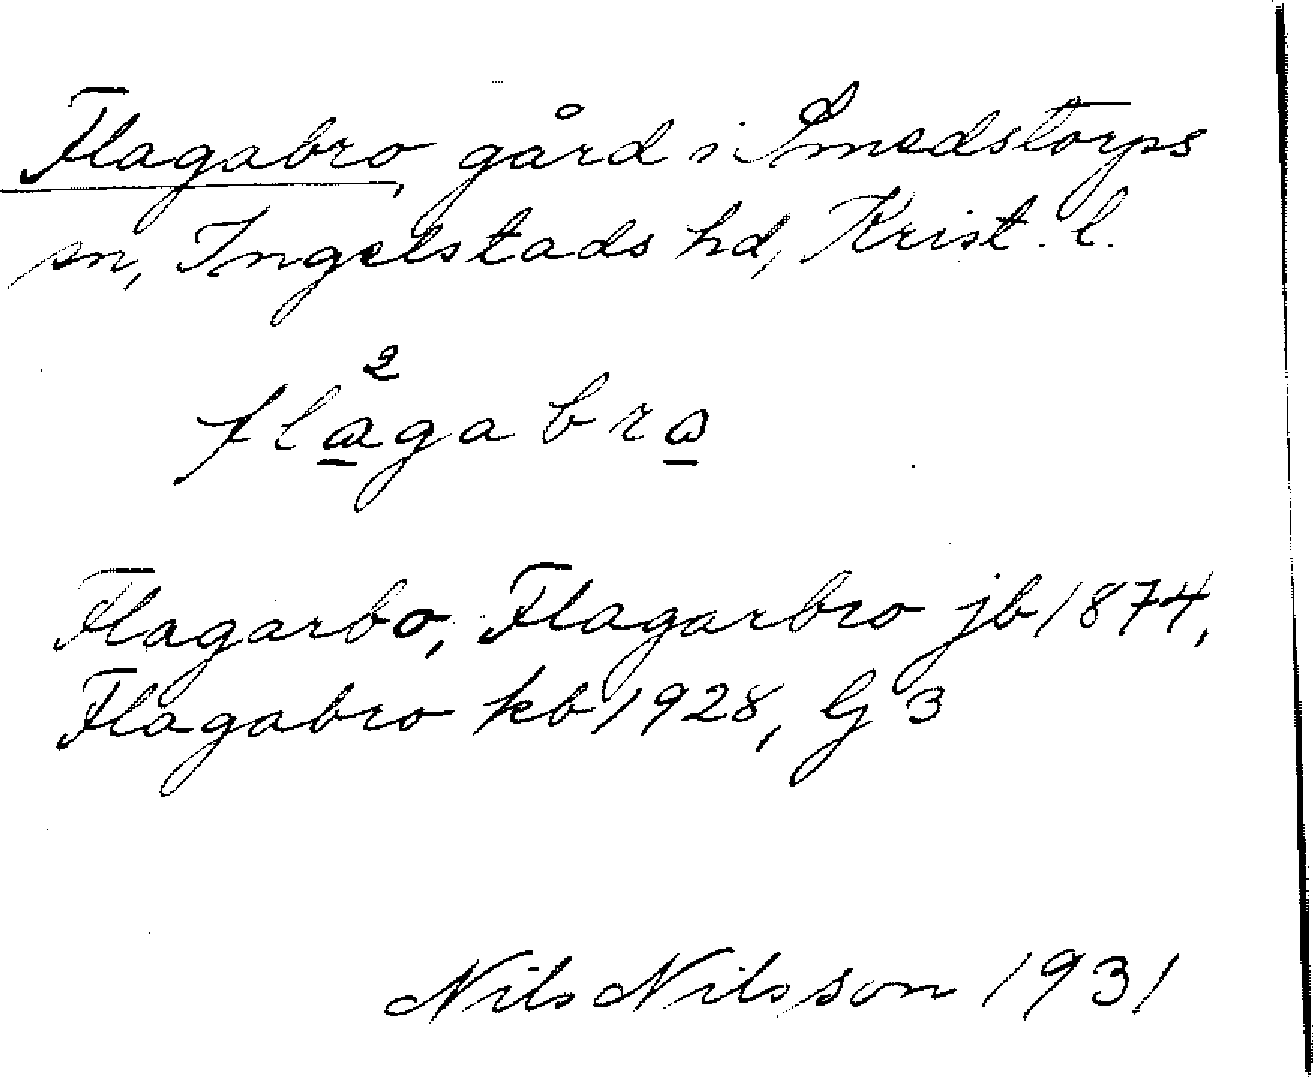 Flagabro, gård i Smedstorps
sn, Ingelstads hd, Krist. l.
Flagarbo, Flagarbro jb 1874,
Flagabro kb 1928, G 3
Nils Nilsson 1931